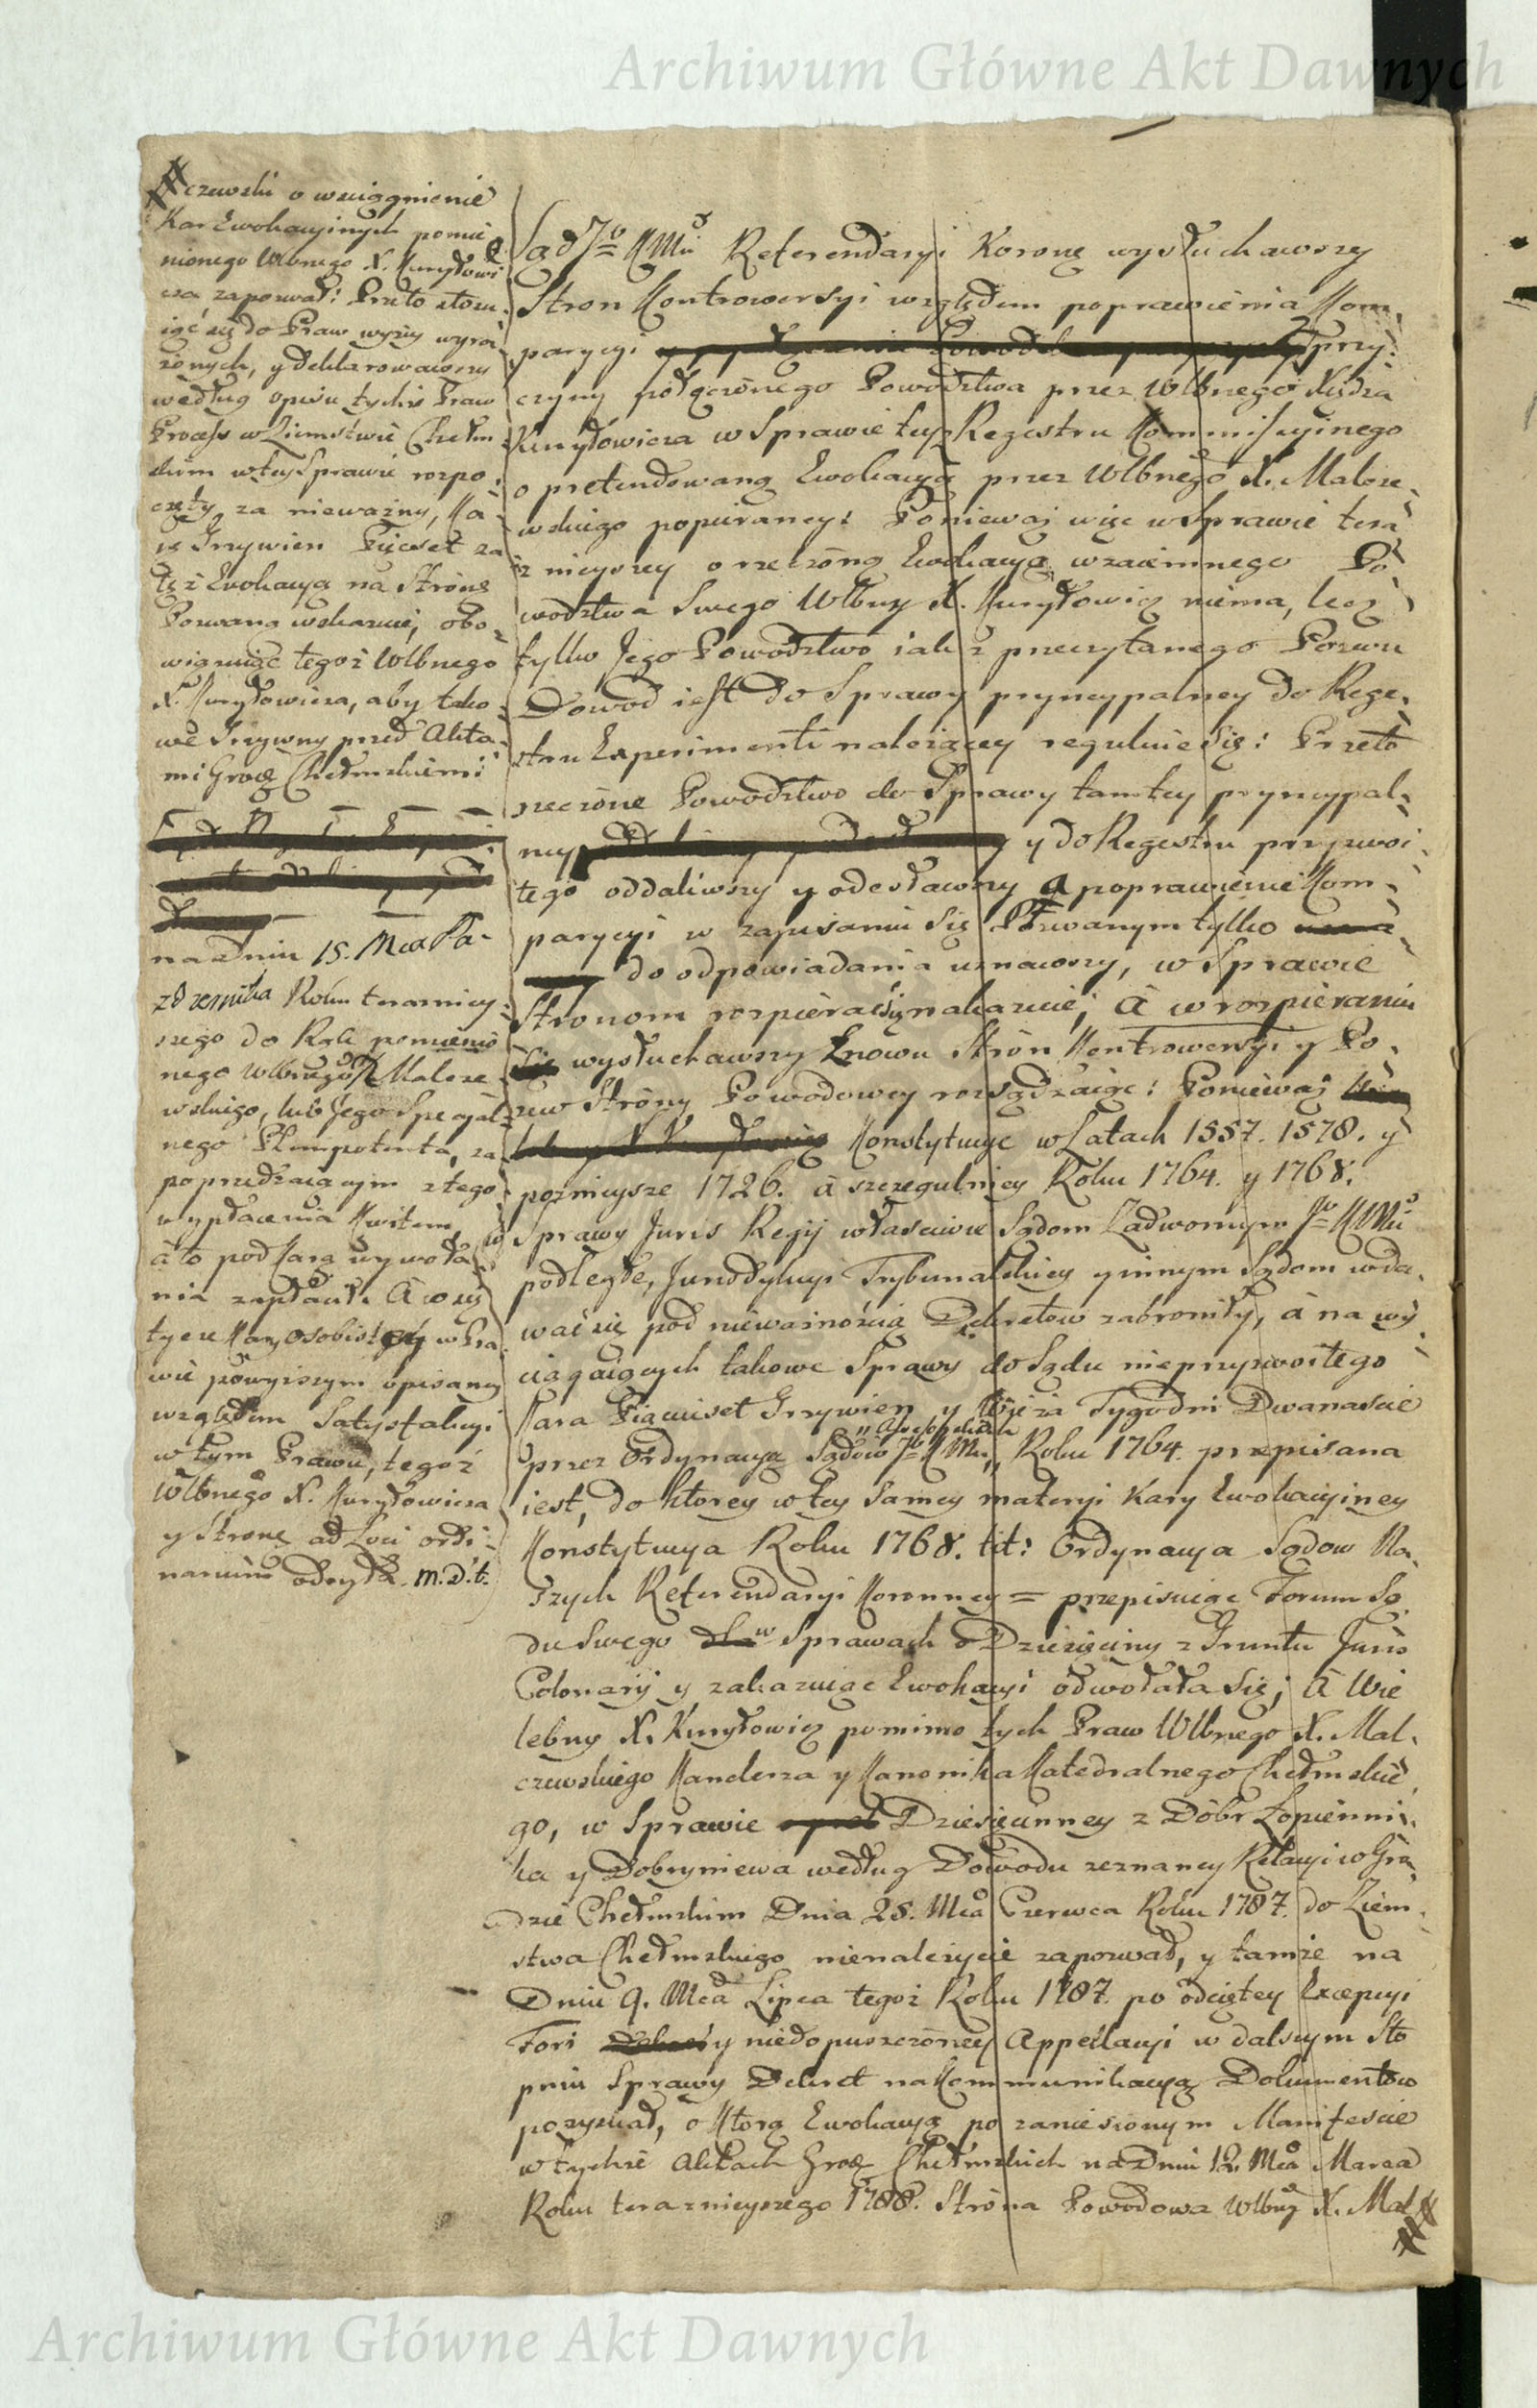 Archiwum Główne Akt Dawnych
Sąd J. K. Mci Referendaryi Koroną wysłuchawszy
Stron Kontrowersyi względem poprawienia Kom-
parycyi przy-
czyny połączonego Powodztwa przez Wlbnego Xiędza
Kuryłowicza w Sprawie tey z Regestru Kommissyinego
o pretendowaną Ewokacyą przez Wlbnego X. Malcze-
wskiego popieraney: Ponieważ więc w Sprawie tera-
znieyszey o rzeczoną Ewokacyą wzaiemnego Po-
wodztwa Swego Wlbny X. Kuryłowicz niema, lecz
tylko Jego Powodztwo iak z przeczytanego Pozwu
Dowod iest do Sprawy pryncypalney do Rege-
stru Experimenti należącey reguluie się: Przeto
rzeczone Powodztwo do Sprawy tamtey pryncypal-
ney y do Regestru przyzwoi-
tego oddaliwszy y odesławszy a poprawienie Kom-
parycyi w zapisaniu się Pozwanym tylko
do odpowiadania uznawszy, w Sprawie
Stronom rozpierać się nakazuie; à w rozpieraniu
się wysłuchawszy Znowu Strón Kontrowersyi y Po-
zew Stróny Powodowey rozsądzaiąc: Ponieważ
Konstytucye w Latach 1557. 1578. y
poznieysze 1726. à szczegulniey Roku 1764. y 1768.
Sprawy Juris Regij właściwie Sądom Zadwornym J. K. Mci
podległe, Jurisdykcyi Trybunalskiey y innym Sądom wda-
wać się pod nieważnością Dekretow zabroniły, à na wy-
ciągaiących takowe Sprawy do Sądu nieprzyzwoitego
Kara Piąciuset Grzywien y Wieża Tygodni Dwanaście
przez Ordynacyą Sądow J. K. Mci Roku 1764. przepisana
iest, do ktorey w tey samey materyi Kary Ewokacyiney
Konstytucya Roku 1768. tit: Ordynacya Sądow Na-
szych Referendaryi Koronney = przepisuiąc Forum Są-
du Swego w Sprawach o Dziesięciny z Gruntu Juris
Colonarij y zakazuiąc Ewokacyi odwołała się; à Wie
lebny X. Kuryłowicz pomimo tych Praw Wlbnego X. Mal-
czewskiego Kanclerza y Kanonika Katedralnego Chełmskie-
go, w Sprawie Dziesięcinney z Dóbr Łopienni-
ka y Dobryniewa według Dowodu zeznaney Relacyi w Gro-
dzie Chełmskim Dnia 25. Mca Czerwca Roku 1787. do Ziem-
stwa Chełmskiego nienależycie zapozwał, y tamże na
Dniu 9. Mca Lipca tegoż Roku 1787. po odciętey Excepcyi
Fori y niedopuszczoney Appellacyi w dalszym Sto
pniu Sprawy Dekret na Kommunikacyą Dokumentow
pozyskał, o Ktorą Ewokacyą po zaniesionym Manifeście
w tychże Aktach Grodz. Chełmskich na Dniu 12. Mca Marca
Roku teraznieyszego 1788. Stróna Powodowa Wlbny X. Mal
czewski o wsciągnienie
Kar Ewokacyinych pomie-
nionego Wlbnego X. Kuryłowi
cza zapozwał: Przeto stosu-
iąc się do Praw wyżey wyra-
żonych, y deklarowawszy
według opisu tychże Praw
Process w Ziemstwie Chełm-
skim w tey Sprawie rozpo-
częty, za nieważny, Ka-
rę Grzywien Pięćset za
tęż Ewokacyą na Stronę
Pozwaną wskazuie, obo-
wiązuiąc tegoż Wlbnego
X. Kuryłowicza, aby tako-
we Grzywny przed Akta-
mi Grodz. Chełmskiemi
na Dniu 15. Mca Pa-
zdziernika Roku terazniey-
szego do Rąk pomienio
nego Wlbnego X. Malcze-
wskiego, lub Jego Specyal-
nego Plenipotenta, za
poprzedzaiącym z tego
wypłacenia Kwitem,
à to pod Karą wywoła
nia zapłacił. à wzię
tycze Kary osobistey w Pra
wie powyższym opisaney
względem Satysfakcyi
w tym Prawu, tegoż
Wlbnego X. Kuryłowicza
y Stronę ad Loci ordi-
narium odsyła. m. d. t.
Archiwum Główne Akt Dawnych